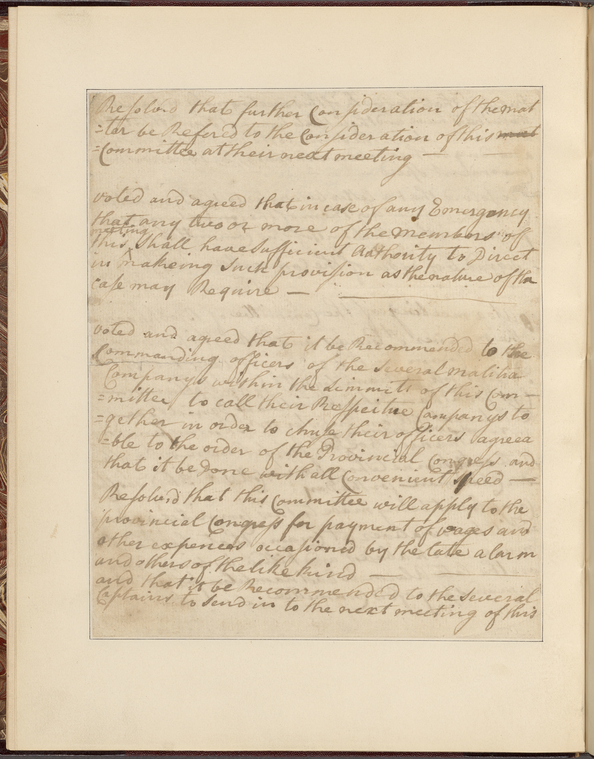 Resolved that further Consideration of the mat
=ter be Refered to the Consideration of this meet
=Committee at their next meeting —
voted and agreed that in case of any Emergency
that any two or more of the members of
meeting
this shall have sufficient Authority to Direct
in makeing Such provision as the nature of the
case may Require —
voted and agreed that it be Recommended to the
Commanding officers of the several malitia
Companys within the Limmits of this Com —
=mittee, to call their Respective Companys to
=gether in order to chuse their officers agreea
=ble to the order of the Provincial Congress and
that it be done with all Convenient Speed —
Resolved that this Committee will apply to the
provincial Congress for payment of wages and
other expences occasioned by the late alarm
and others of the like kind —
and that it be Recommended to the several
Captains to Send in to the next meeting of this